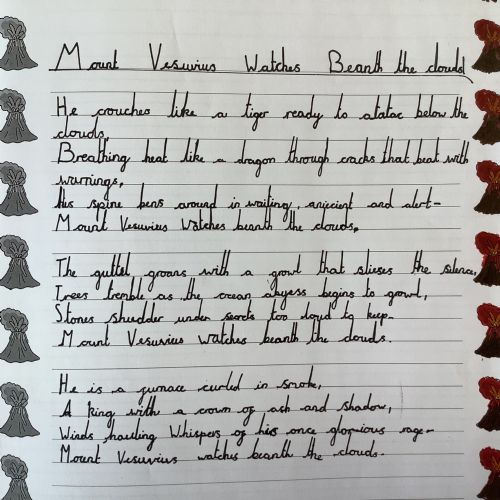 Mount Vesuvius Watches Beanth the clouds!
He crouches like a tiger ready to atatac below the
clouds,
Breathing heat like a dragon through cracks that beat with
warnings,
his spine bens around in waiting, anjecient and alert-
Mount Vesuvius Watches beanth the clouds.
The guttel groans with a growl that slieses the silence,
Trees tremble as the crean abyess begins to growl,
Stones shudder under secrets too loud to keep-
Mount Vesuvius Watches beanth the clouds.
He is a furnace curled in smoke,
A king with a crown of ash and shadow,
Winds hauling Whispers of his once glorpious rage-
Mount Vesuvius watches beanth the clouds.